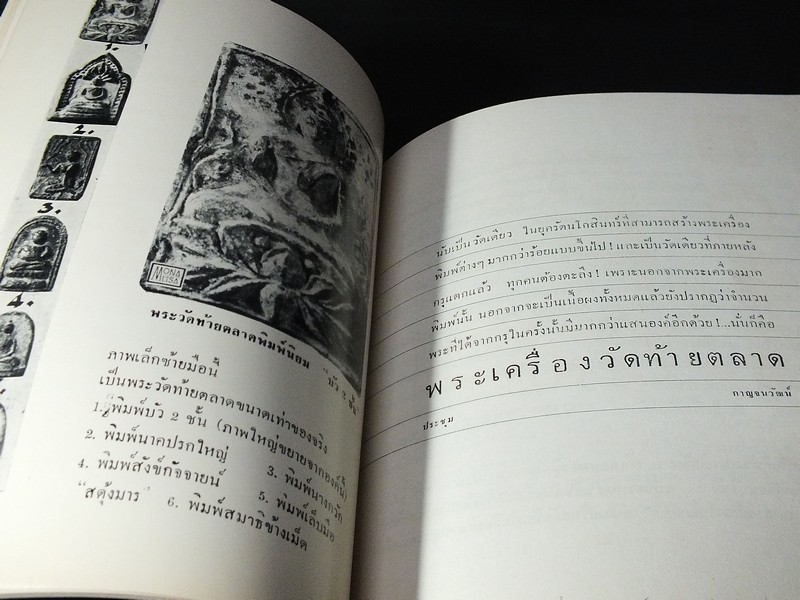 1.
2.
3.
4.
MONA LISA
พระวัดท้ายตลาดพิมพ์นิยม "บัว ๒ ชั้น"
ภาพเล็กซ้ายมือนี้
เป็นพระวัดท้ายตลาดขนาดเท่าของจริง
1. พิมพ์บัว 2 ชั้น (ภาพใหญ่ขยายจากองค์นี้)
2. พิมพ์นาคปรกใหญ่ 3. พิมพ์นางกวัก
4. พิมพ์สังข์กัจจายน์ 5. พิมพ์เล็บมือ
"สดุ้งมาร" 6. พิมพ์สมาธิข้างเม็ด
นับเป็นวัดเดียว ในยุครัตนโกสินทร์ที่สามารถสร้างพระเครื่อง
พิมพ์ต่างๆ มากกว่าร้อยแบบขึ้นไป! และเป็นวัดเดียวที่ภายหลัง
กรุแตกแล้ว ทุกคนต้องตะลึง! เพราะนอกจากพระเครื่องมาก
พิมพ์นั้น นอกจากจะเป็นเนื้อผงทั้งหมดแล้วยังปรากฏว่าจำนวน
พระที่ได้จากกรุในครั้งนั้นมีมากกว่าแสนองค์อีกด้วย!...นั่นก็คือ
พระเครื่องวัดท้ายตลาด
ประชุม กาญจนวัฒน์